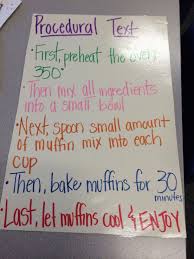 Procedural Text
• First, preheat the oven
350°
• Then mix all ingredients
into a small bowl
• Next, spoon small amount
of muffin mix into each
cup
• Then, bake muffins for 30
minutes
• Last, let muffins cool & ENJOY